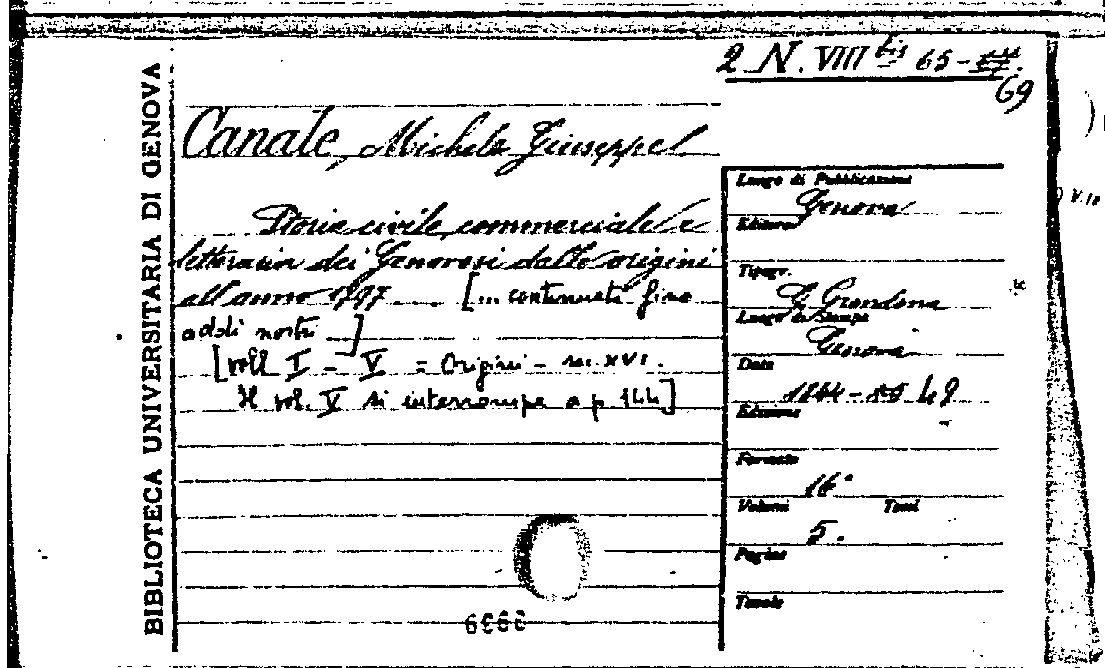 BIBLIOTECA UNIVERSITARIA DI GENOVA
2 N. VIII bis 65-
69
Canale, Michele Giuseppe
Storia civile, commerciale e
letteraria dei Genovesi dalle origini
all'anno 1797 [... continuata fino
addì nostri]
[voll I - V = Origini - sec. XVI.
Il vol. V si interrompe a p. 144]
Luogo di Pubblicazione
Genova
Editore
Tipogr.
G. Grondona
Luogo di Stampa
Genova
Data
1844 - 49
Edizione
Formato
16°
Volumi Tomi
5.
Pagine
Tavole